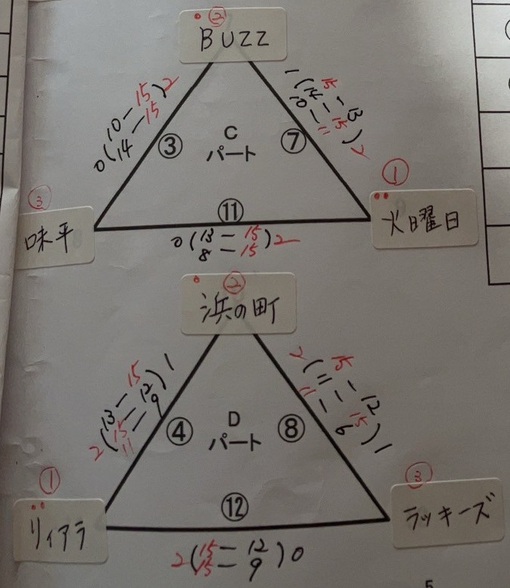 ②
BUZZ
10 - 15
0(14 - 15)2
1(15 - 13
14 - 15
10 - 11)2
C
パート
③
⑦
③
①
⑪
味平
火曜日
0(13 - 15)2
8 - 15
②
浜の町
2(13 - 15
15 - 12
11 - 9)1
2(15 - 12
11 - 15
11 - 6)1
D
パート
④
⑧
①
③
⑫
リィアラ
ラッキーズ
2(15 - 12)0
15 - 9